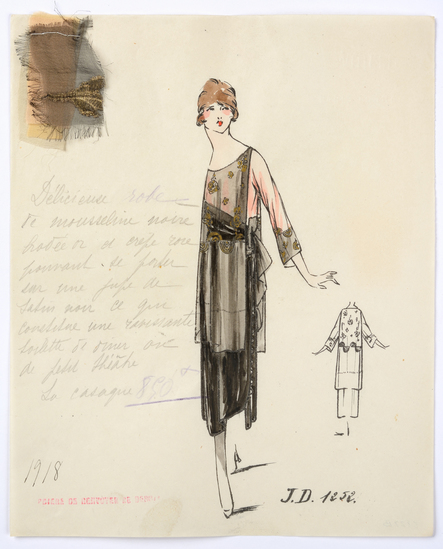 Délicieuse robe
de mousseline noire
brodée or et crêpe rose
pouvant se poser
sur une jupe de
satin noir ce qui
constitue une ravissante
toilette de diner ou
de petit théâtre
La casaque 850
1918
J.D. 1252.